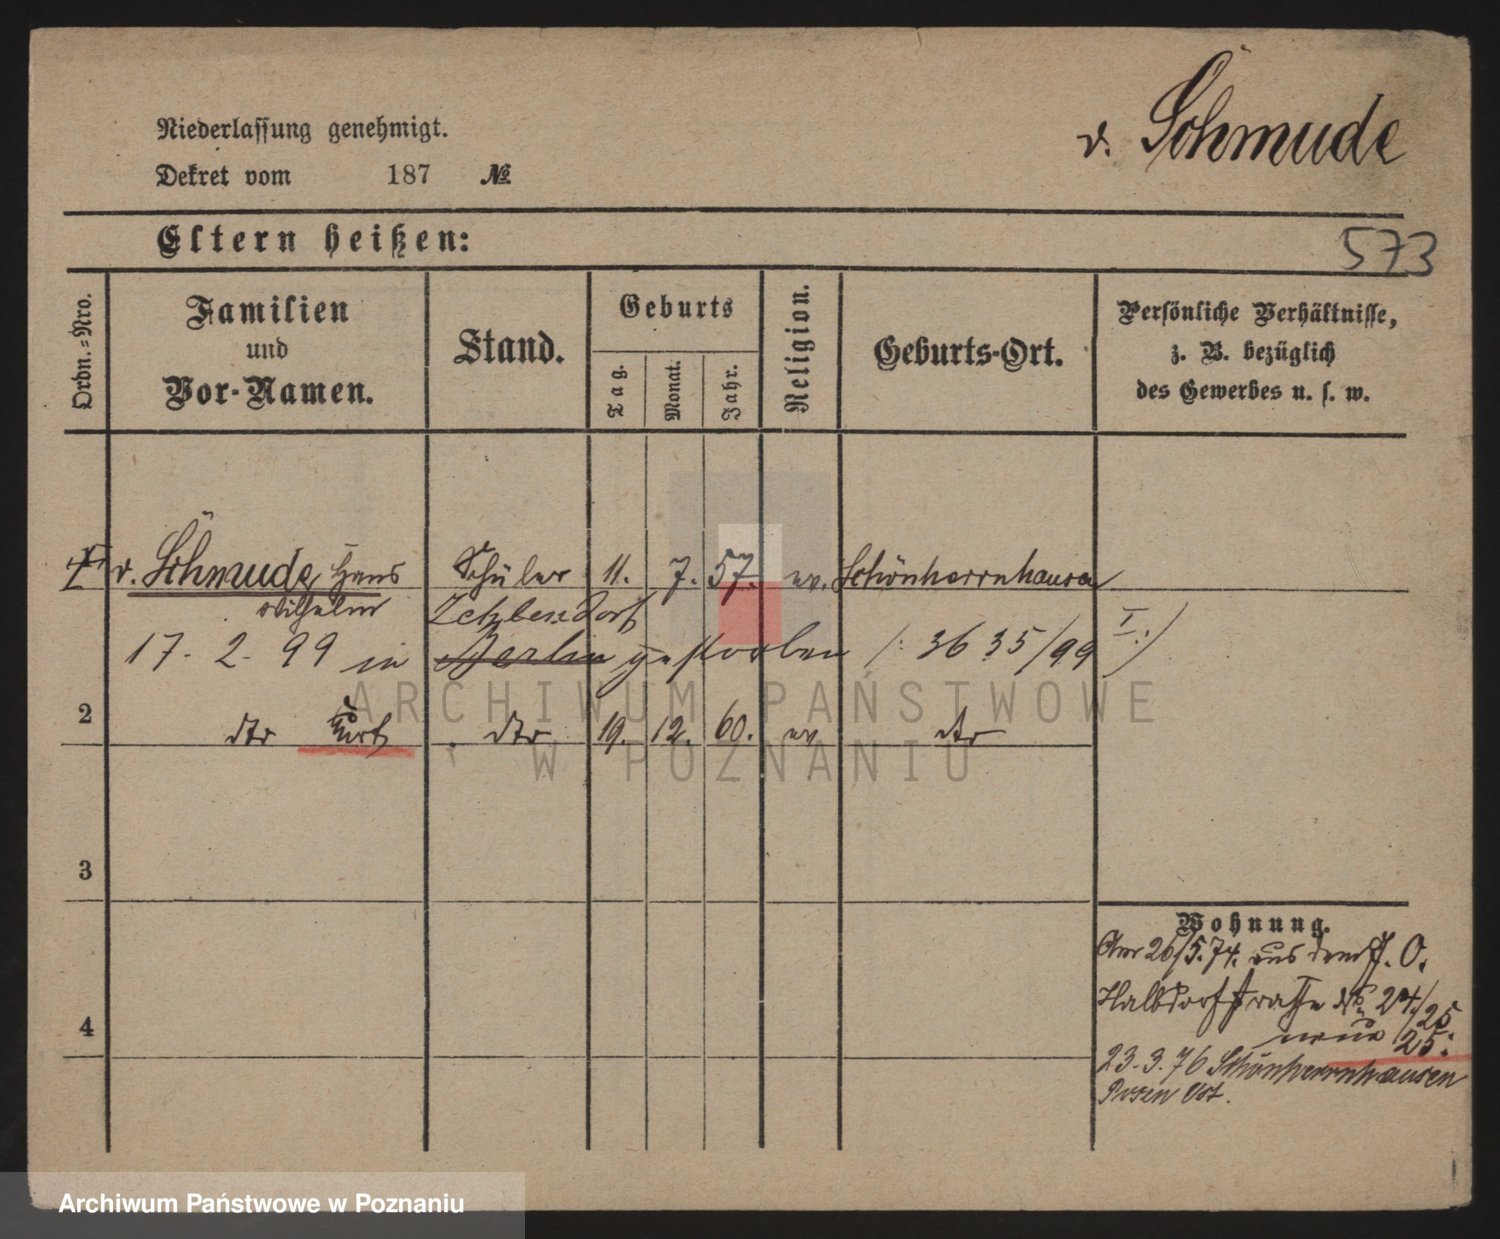 v. Schmude
Niederlassung genehmigt.
Dekret vom 187 №
Eltern heißen:
573
Ordn.=Nro.
Familien
und
Vor-Namen.
Stand.
Geburts
Tag.
Monat.
Jahr.
Religion.
Geburts-Ort.
Persönliche Verhältnisse,
z. B. bezüglich
des Gewerbes u. s. w.
v. Schmude, Hans Schüler 11. 7. 57. ev. Schönherrnhausen
Wilhelm
17. 2. 99 in Berlin gestorben /: 3635/99 I :/
2 dto Kurt dto 19. 12. 60. ev dto
3
4
Wohnung.
26/5.74. aus dem J. O.
Halbdorfstraße № 24/25
neue 25.
23.3.76 Schönherrnhausen
Posen Ost.
ARCHIWUM PAŃSTWOWE
W POZNANIU
Archiwum Państwowe w Poznaniu